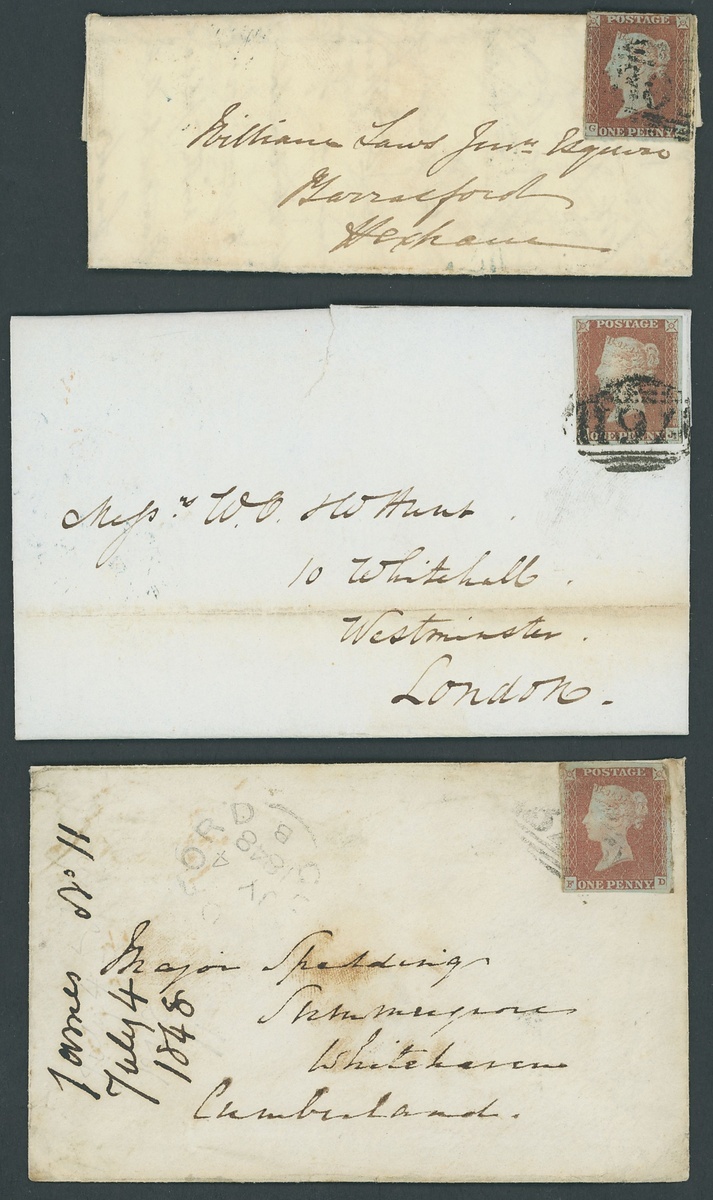 POSTAGE
G ONE PENNY
William Laws Junr. Esquire
Barrasford
Hexham
POSTAGE
ONE PENNY
Messrs W.O. & W Hunt
10 Whitehall.
Westminster.
London.
POSTAGE
F ONE PENNY D
1848
James No 11
July 4
1848
Major Spedding
Summergrove
Whitehaven
Cumberland.